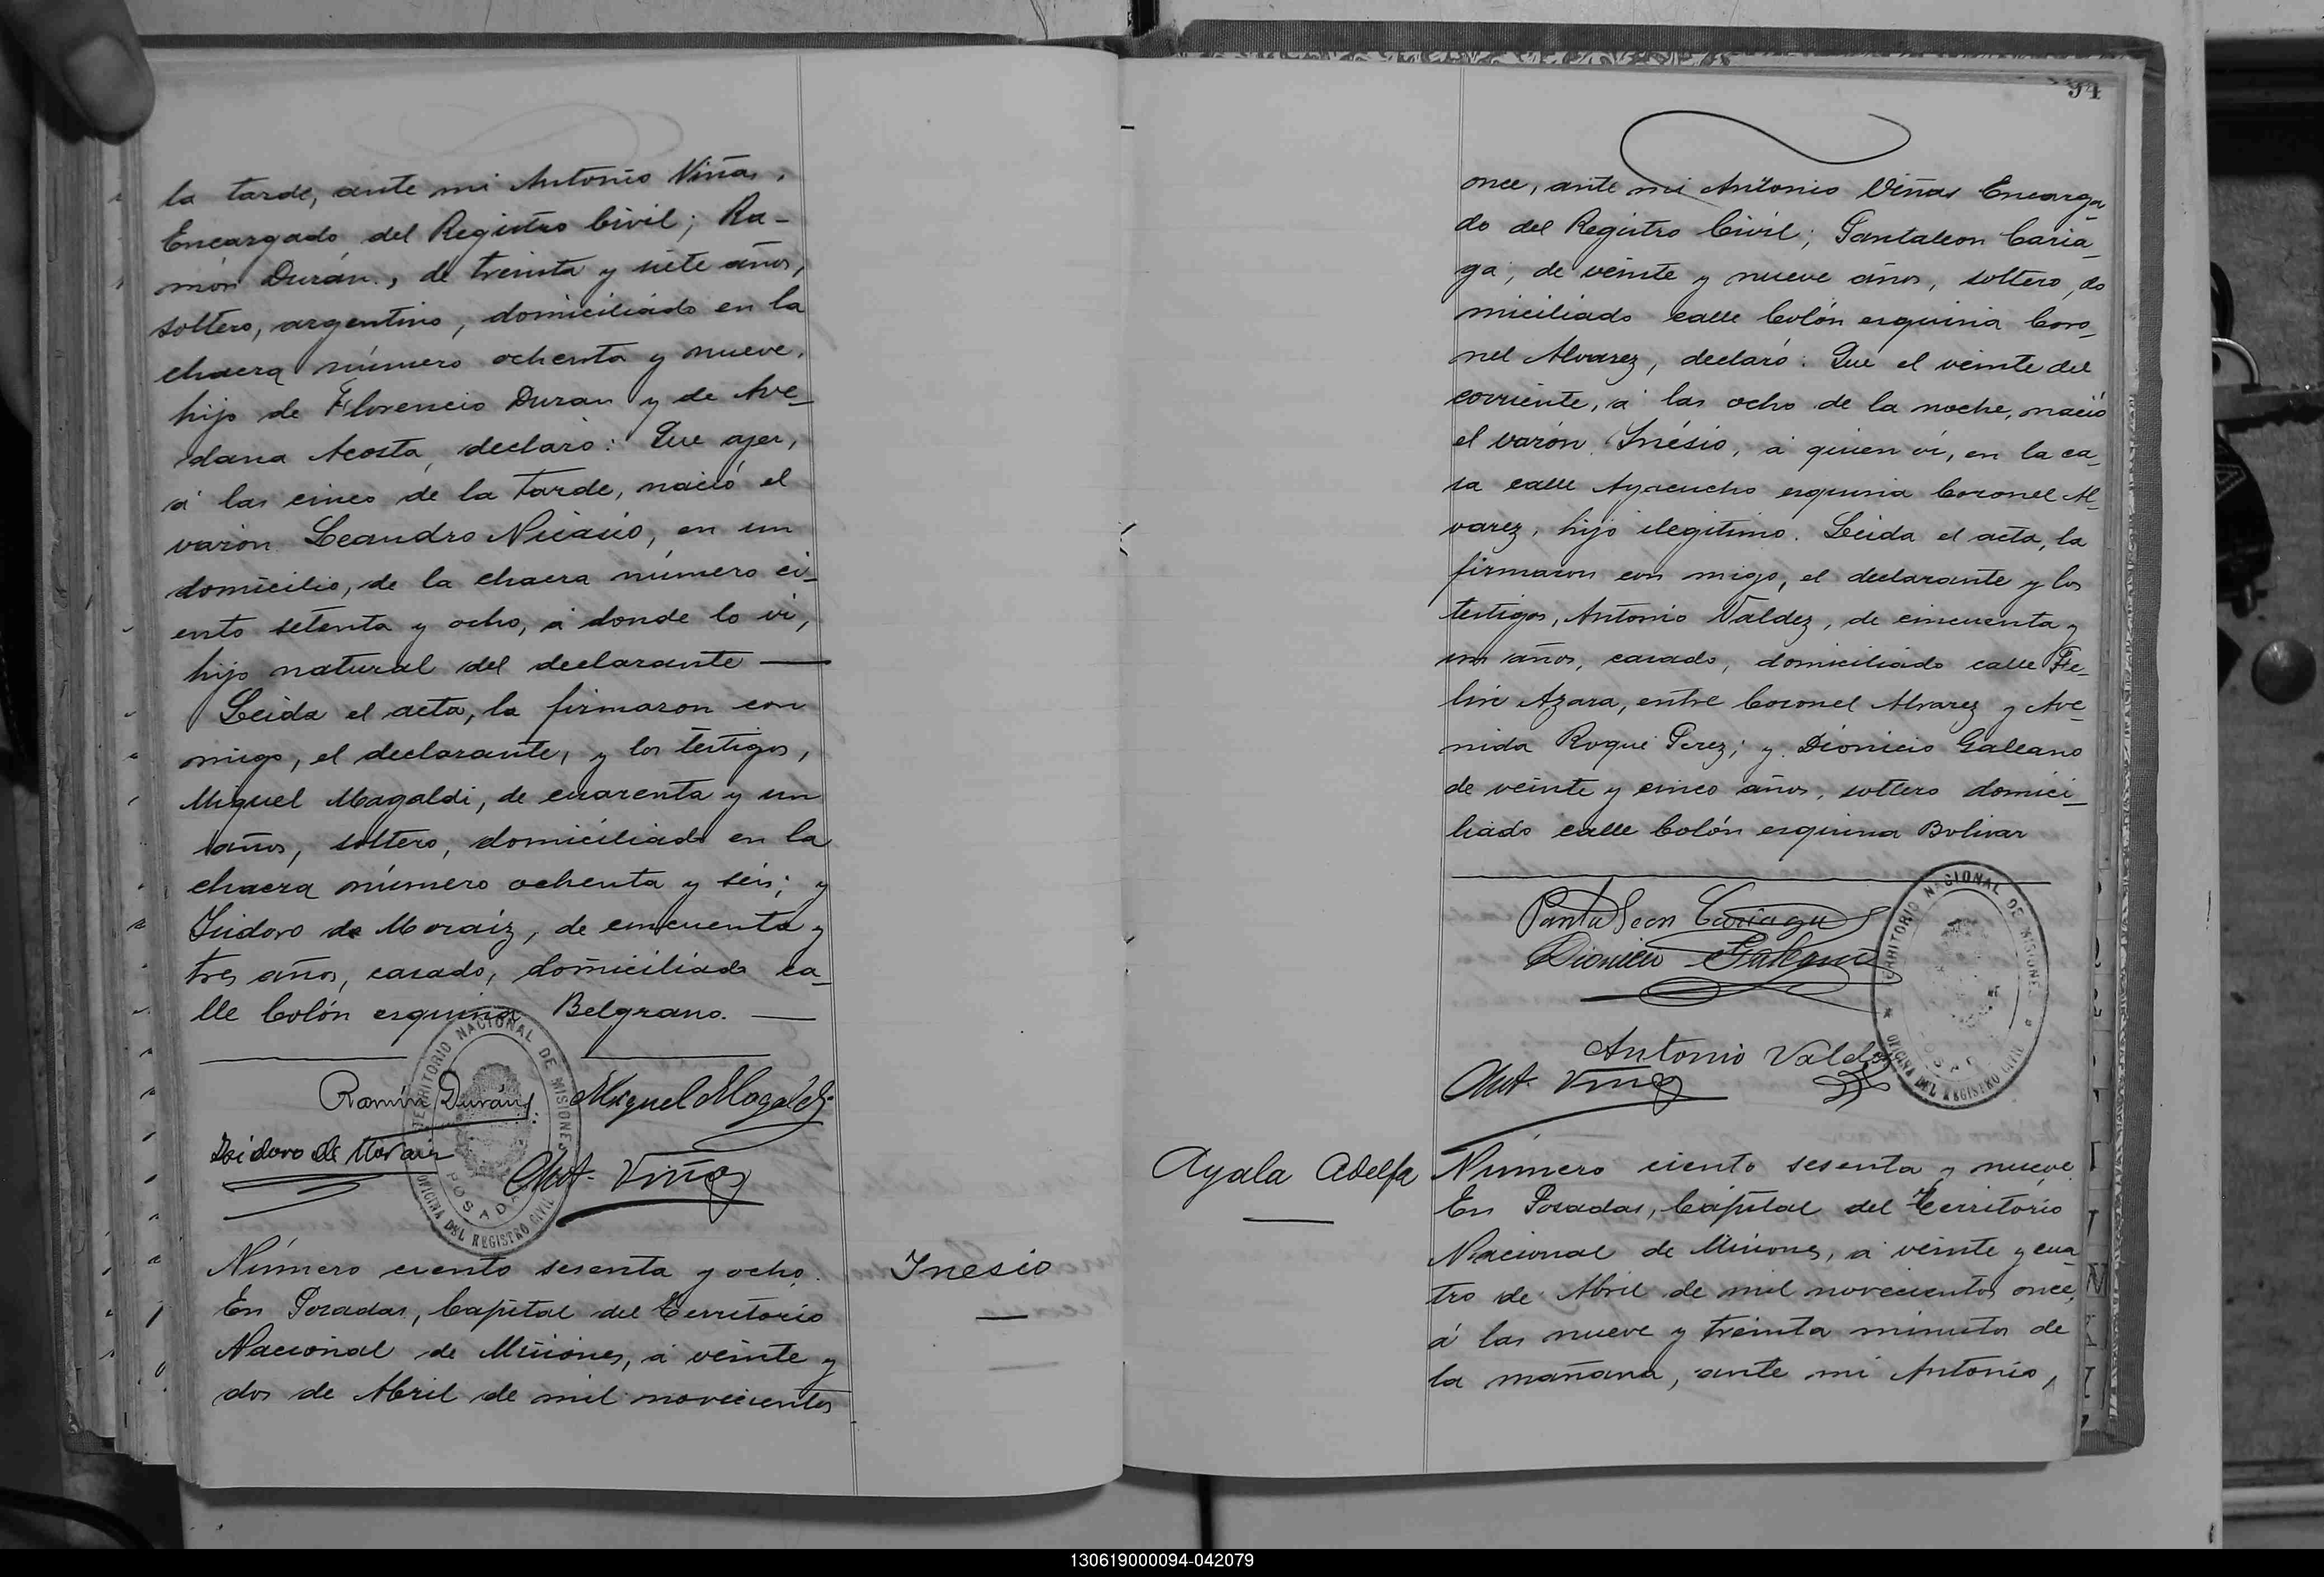 la tarde, ante mi Antonio Viñas,
Encargado del Registro Civil; Ra-
món Durán, de treinta y siete años,
soltero, argentino, domiciliado en la
chacra número ochenta y nueve,
hijo de Florencio Duran y de Ave-
dana Acosta, declaró: Que ayer,
á las cinco de la tarde, nació el
varón Leandro Nicasio, en un
domicilio, de la chacra número ci-
ento setenta y ocho, á donde lo vi,
hijo natural del declarante
Leida el acta, la firmaron con
migo, el declarante, y los testigos,
Miguel Magaldi, de cuarenta y un
años, soltero, domiciliado en la
chacra número ochenta y seis; y
Isidoro de Moraiz, de cincuenta y
tres años, casado, domiciliado ca-
lle Colón esquina Belgrano.
Ramón Durán Miguel Magaldi
Isidoro de Moraiz Ant. Viñas
TERRITORIO NACIONAL DE MISIONES
POSADAS
OFICINA DEL REGISTRO CIVIL
Número ciento sesenta y ocho.
Inesio
En Posadas, Capital del Territorio
Nacional de Misiones, á veinte y
dos de Abril de mil novecientos
94
once, ante mi Antonio Viñas Encarga
do del Registro Civil; Pantaleon Caria-
ga, de veinte y nueve años, soltero, do
miciliado calle Colón esquina Coro-
nel Alvarez, declaró: Que el veinte del
corriente, á las ocho de la noche, nació
el varón Inésio, á quien vi, en la ca-
sa calle Ayacucho esquina Coronel Al-
varez, hijo ilegitimo. Leida el acta, la
firmaron con migo, el declarante y los
testigos, Antonio Valdez, de cincuenta y
un años, casado, domiciliado calle Fe-
lix Azara, entre Coronel Alvarez y Ave-
nida Roque Perez; y Dionicio Galeano
de veinte y cinco años, soltero domici-
liado calle Colón esquina Bolivar
Pantaleon Cariaga
Dionicio Galeano
Antonio Valdez
Ant. Viñas
TERRITORIO NACIONAL DE MISIONES
POSADAS
OFICINA DEL REGISTRO CIVIL
Ayala Adelfa
Número ciento sesenta y nueve.
En Posadas, Capital del Territorio
Nacional de Misiones, á veinte y cua
tro de Abril de mil novecientos once,
á las nueve y treinta minutos de
la mañana, ante mi Antonio,
130619000094-042079